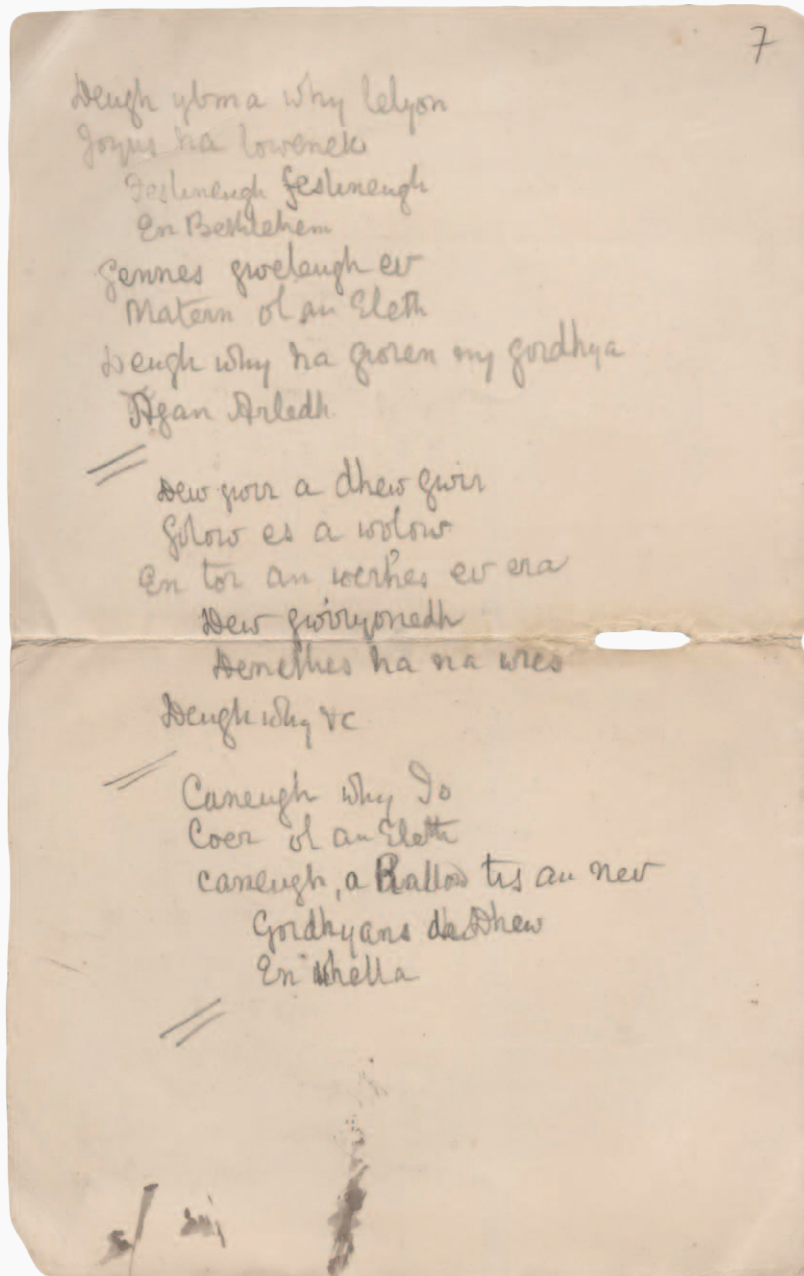 7
Deugh ybma why lelyon
Joyus ha lowenek
Festineugh festineugh
En Bethlehem
Gennes gweleugh ev
Matern ol an Eleth
Deugh why ha groren ny gordhya
Agan Arledh
Dew gwir a dhew gwir
Golow es a wolow
En tor an werhes ev era
Dew gwirryonedh
Denethes ha na wres
Deugh why &c
Caneugh why Io
Coer ol an Eleth
Caneugh, a Rallow tis an nev
Gordhyans dha Dhew
En uhella